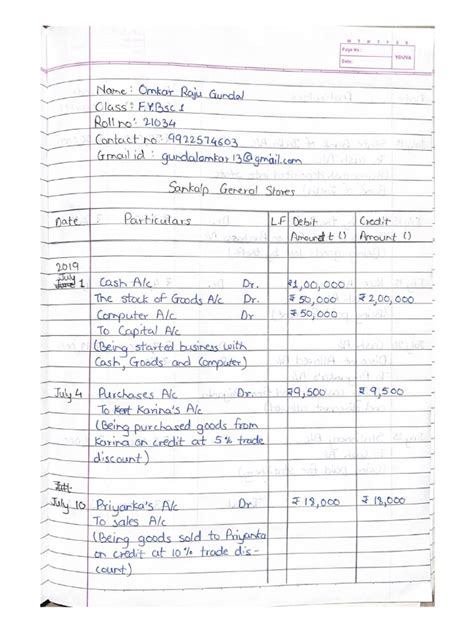 M T W T F S S
Page No.:
Date:
YOUVA
Name: Omkar Raju Gundal
Class: F.Y.Bsc 1
Roll no: 21034
Contact no: 9922574603
Gmail id: gundalomkar13@gmail.com
Sankalp General Stores
Date Particulars L.F Debit Credit
Amount () Amount ()
2019
July 1 Cash A/c Dr. ₹1,00,000
The stock of Goods A/c Dr. ₹ 50,000 ₹ 2,00,000
Computer A/c Dr. ₹ 50,000
To Capital A/c
(Being started business with
Cash, Goods and Computer)
July 4 Purchases A/c Dr ₹9,500 ₹ 9,500
To Karina's A/c
(Being purchased goods from
Karina on credit at 5% trade
discount)
July 10 Priyanka's A/c Dr ₹ 18,000 ₹ 18,000
To sales A/c
(Being goods sold to Priyanka
on credit at 10% trade dis-
count)